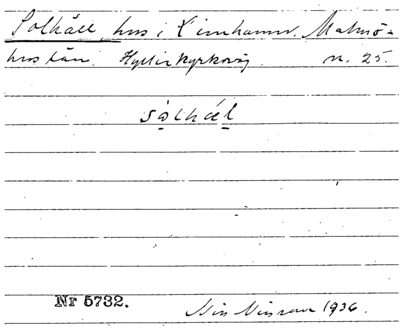 Solhäll, hus i Limhamn. Malmö-
hus län. Hyllie kyrkoväg n. 25.
sòlhál
Nr 5732. Nils Nilsson 1936.